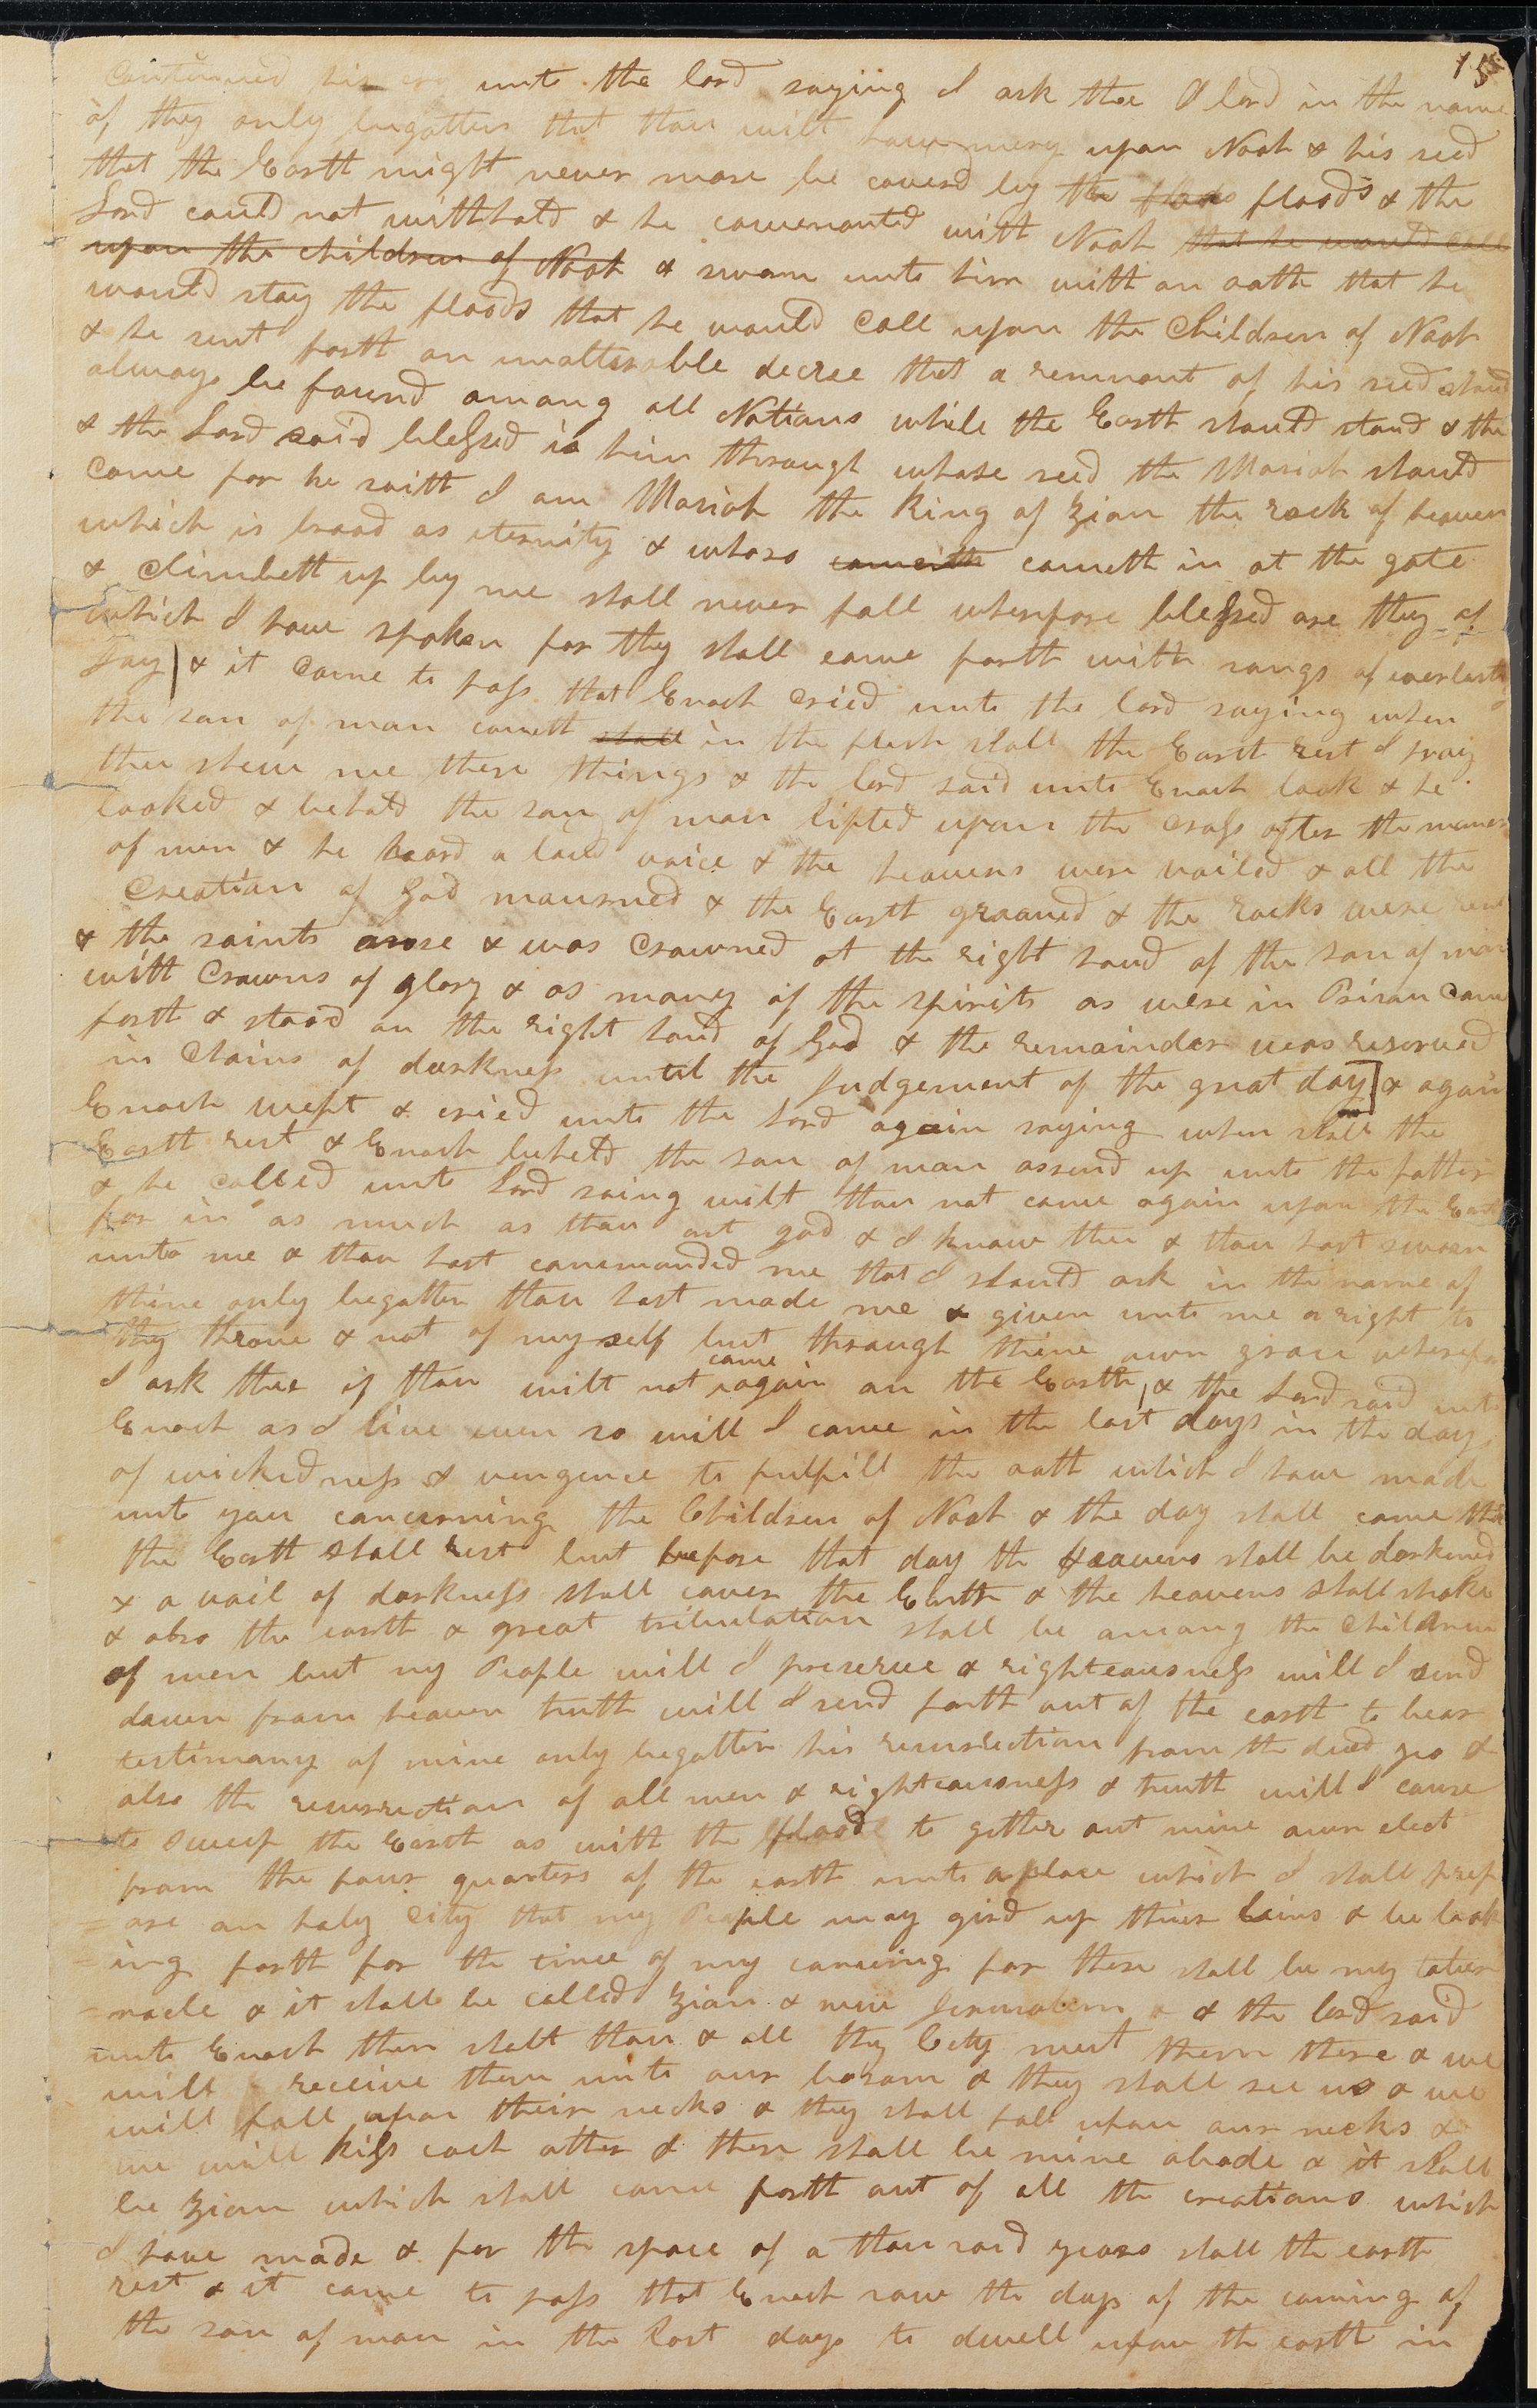 15
Continued his cry unto the lord saying I ask thee O lord in the name
of thy only begotten that thou wilt have mercy upon Noah & his seed
that the Earth might never more be coverd by the floods & the
Lord could not withhold & he covenanted with Noah that he would call
upon the children of Noah & swore unto him with an oath that he
would stay the floods that he would Call upon the Children of Noah
& he sent forth an unalterable decree that a remnant of his seed should
always be found among all Nations while the Earth should stand & the
& the Lord said blessed is him through whose seed the Masiah should
come for he saith I am Masiah the King of Zion the rock of heaven
which is broad as eternity & whoso cometh cometh in at the gate
& climbeth up by me shall never fall wherefore blessed are they of
which I have spoken for they shall come forth with songs of everlasting
Joy & it Came to pass that Enoch Cried unto the lord saying when
the son of man cometh shall in the flesh shall the Earth rest I pray
thee shew me these things & the lord said unto Enoch look & he
looked & beheld the son of man lifted upon the cross after the maner
of men & he heard a loud voice & the heavens were vailed & all the
Creation of God mourned & the Earth groaned & the rocks were rent
& the saints arose & was Crowned at the right hand of the son of man
with Crowns of glory & as many of the spirits as were in Prison Came
forth & stood on the right hand of God & the remainder was reserved
in Chains of darkness until the Judgement of the great day & again
Enoch wept & cried unto the Lord again saying when shall the
Earth rest & Enoch beheld the son of man assend up unto the father
& he called unto Lord saing wilt thou not come again upon the Earth
for in as much as thou art god & I know thee & thou hast sworn
unto me & thou hast commanded me that I should ask in the name of
thine only begotten thou hast made me & given unto me a right to
thy throne & not of my self but through thine own grace wherefore
I ask thee if thou wilt not come again on the Earth & the Lord said unto
Enoch as I live even so will I come in the last days in the days
of wickedness & vengence to fulfill the oath which I have made
unto you concerning the Children of Noah & the day shall come that
the Earth shall rest but before that day the Heavens shall be darkened
& a vail of darkness shall cover the Earth & the heavens shall shake
& also the earth & great tribulation shall be among the Children
of men but my People will I preserve & righteousness will I send
down from heaven truth will I send forth out of the earth to bear
testimony of mine only begotten his resurrection from the dead yea &
also the resurrection of all men & righteousness & truth will I cause
to sweep the Earth as with the flood to gether out mine own elect
from the four quarters of the earth unto a place which I shall prep
=are an holy City that my People may gird up thier loins & be look
=ing forth for the time of my coming for there shall be my taber
=nacle & it shall be called Zion & new Jerusalem & the lord said
unto Enoch then shalt thou & all thy City meet them there & we
will receive them unto our bosom & they shall see us & we
will fall upon their necks & they shall fall upon our necks &
we will kiss each other & there shall be mine abode & it shall
be Zion which shall come forth out of all the creations which
I have made & for the space of a thousand years shall the earth
rest & it came to pass that Enoch saw the days of the coming of
the son of man in the last days to dwell upon the earth in